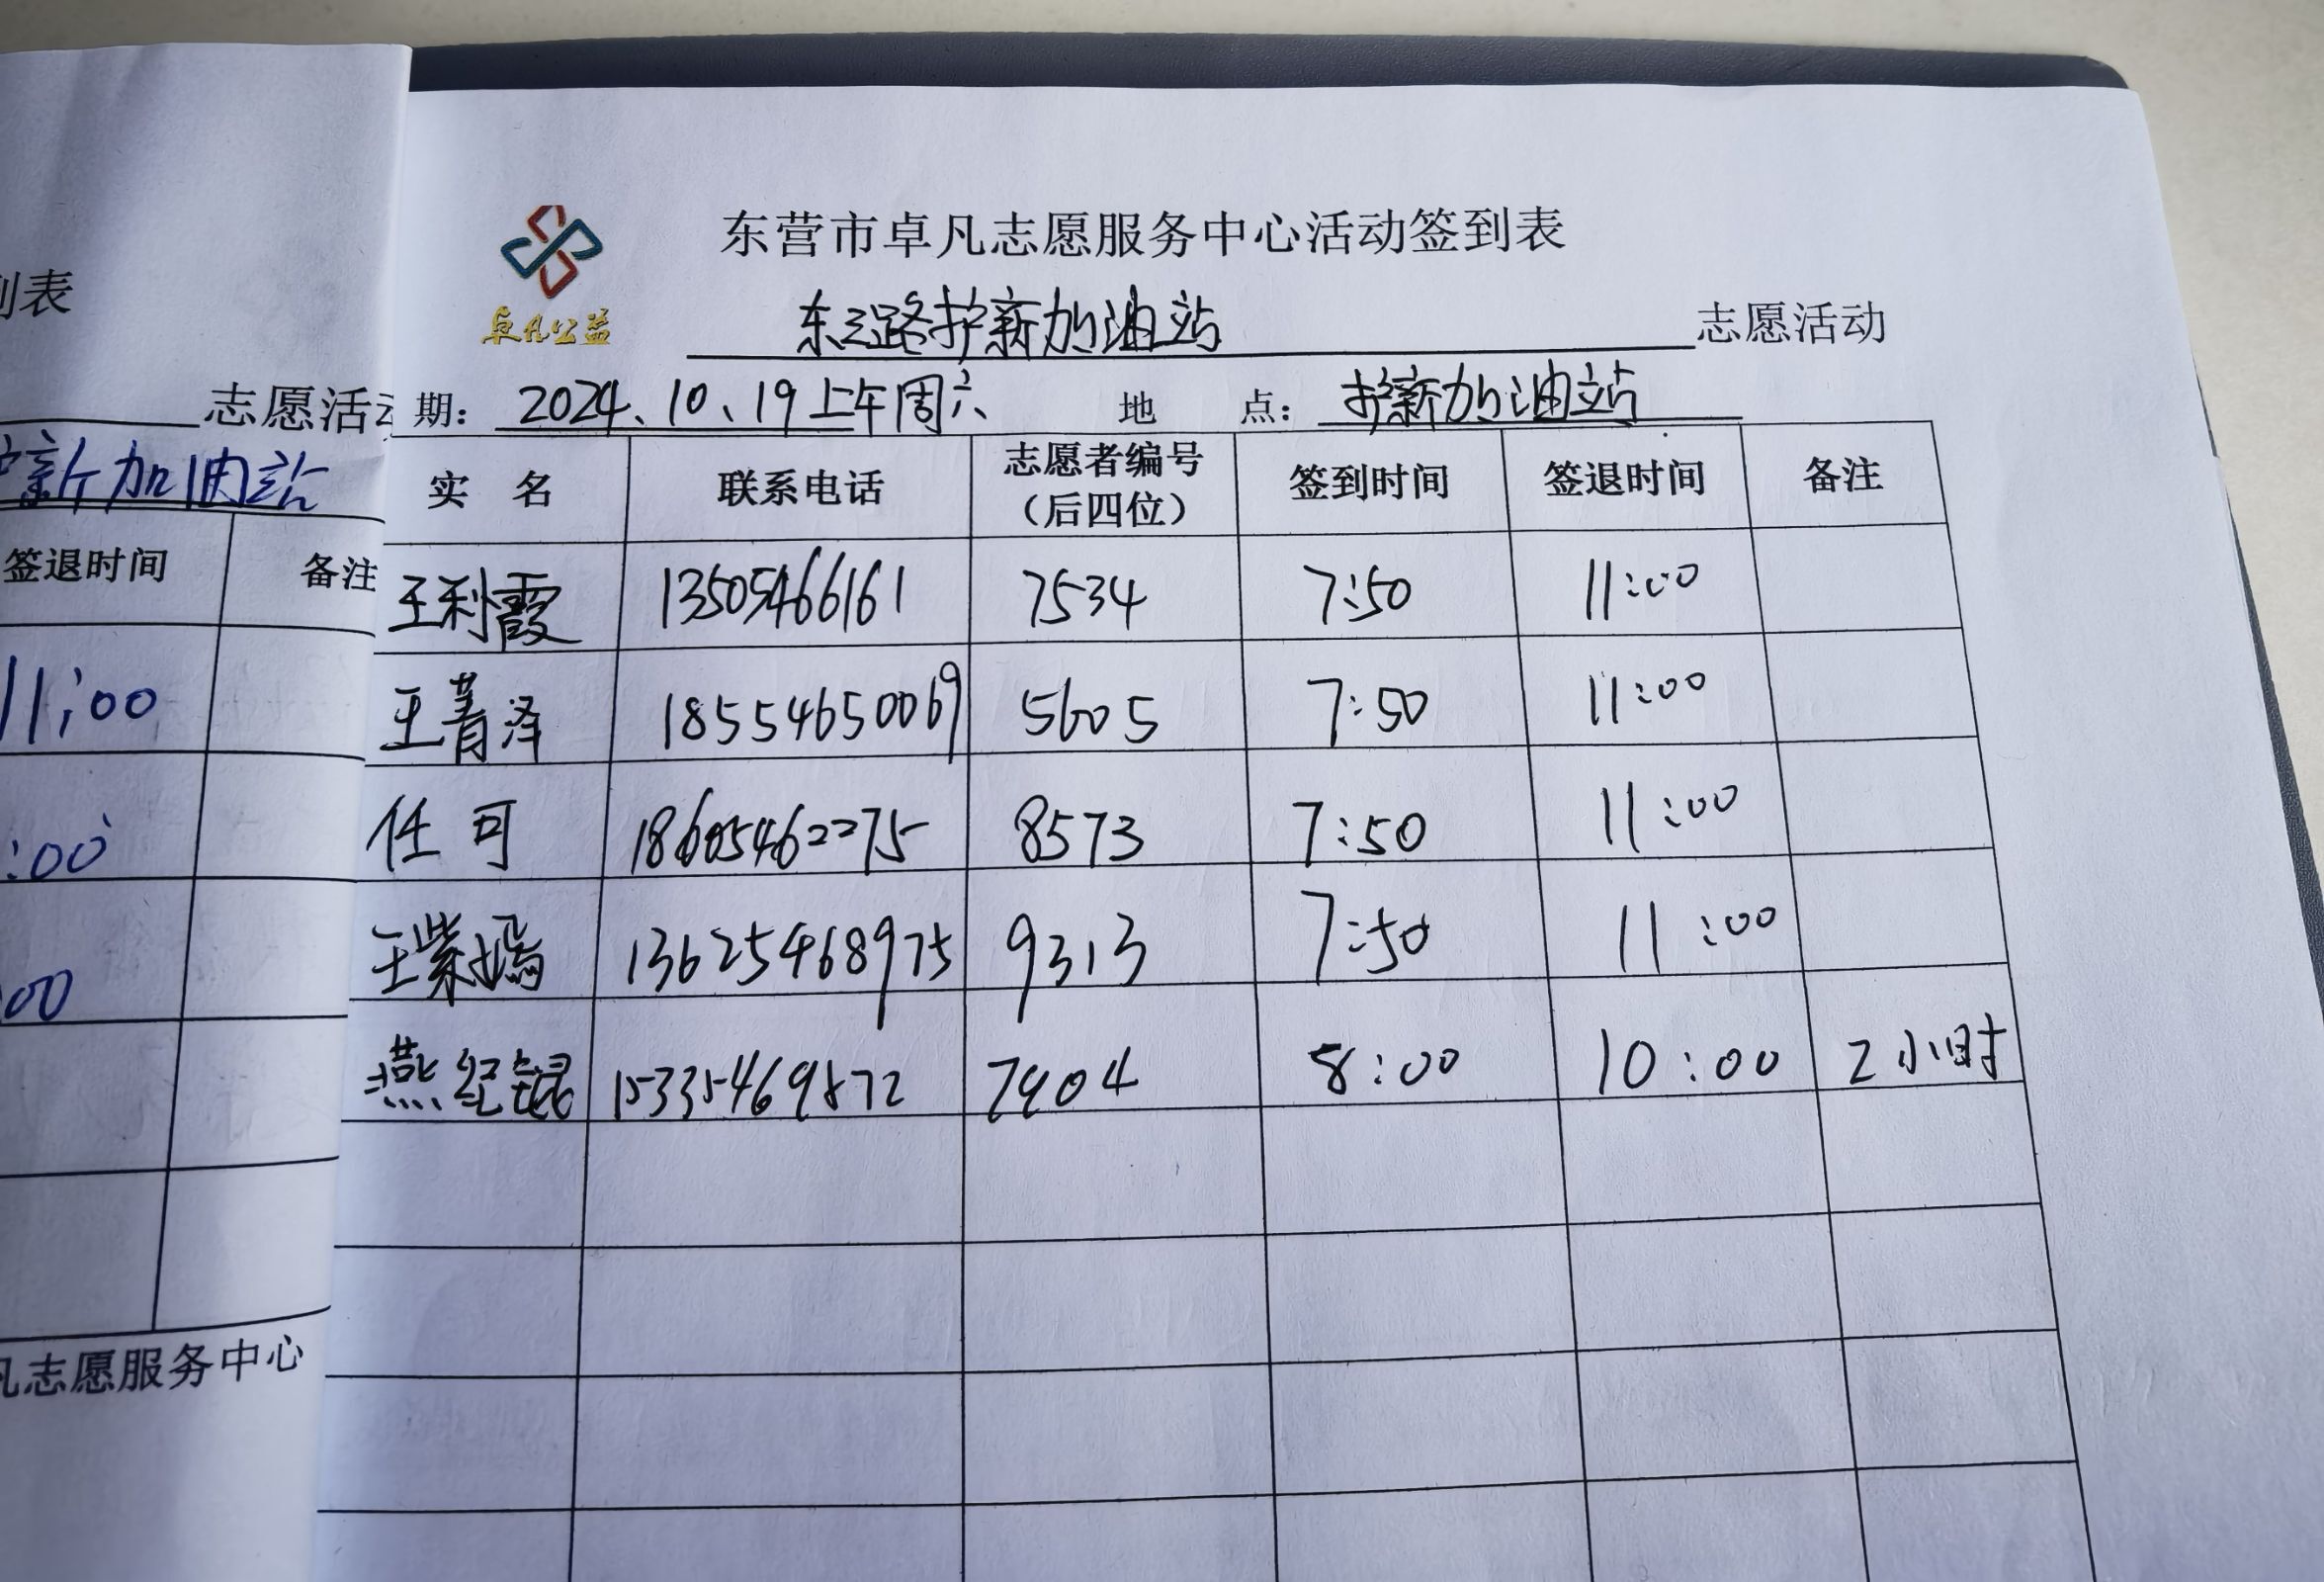 东营市卓凡志愿服务中心活动签到表
卓凡公益
东三路护新加油站 志愿活动
期: 2024、10、19上午周六 地 点: 护新加油站
实 名 联系电话 志愿者编号(后四位) 签到时间 签退时间 备注
王利霞 13505466161 7534 7:50 11:00
王菁泽 18554650069 5605 7:50 11:00
任可 18605462275 8573 7:50 11:00
王紫嫣 13625468975 9313 7:50 11:00
燕纪锟 15335469872 7904 8:00 10:00 2小时
到表
志愿活动
护新加油站
签退时间 备注
11:00
:00
00
凡志愿服务中心